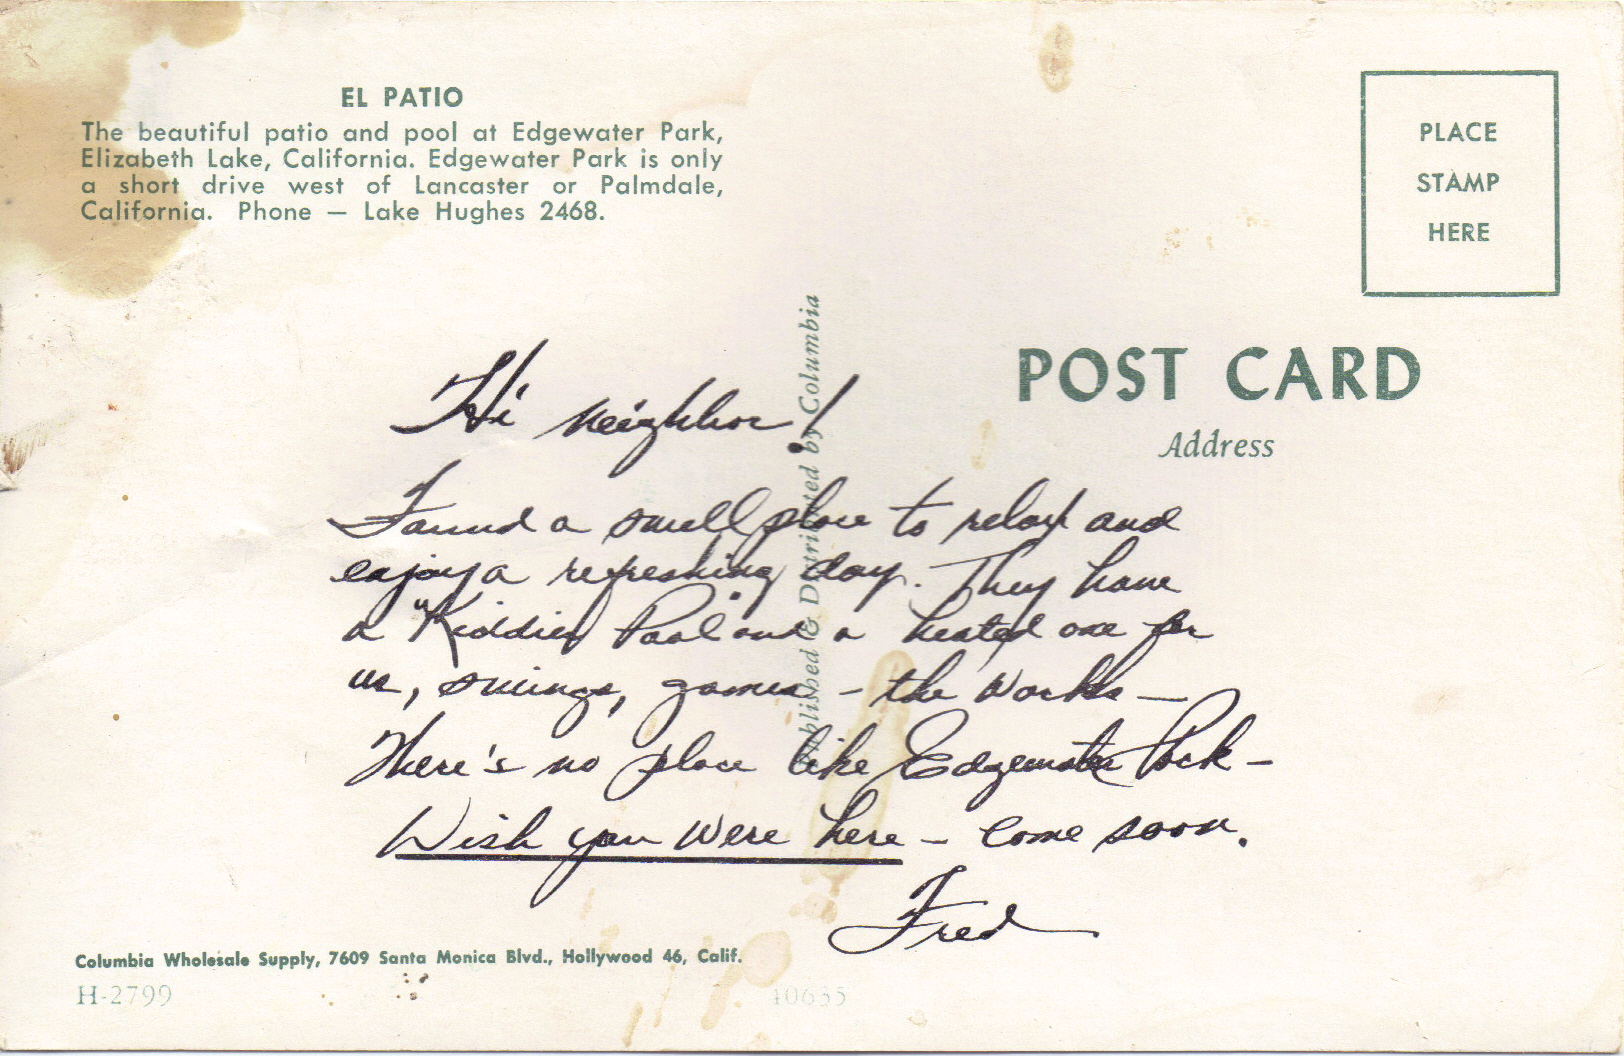 EL PATIO
The beautiful patio and pool at Edgewater Park,
Elizabeth Lake, California. Edgewater Park is only
a short drive west of Lancaster or Palmdale,
California. Phone — Lake Hughes 2468.
PLACE
STAMP
HERE
POST CARD
Address
Published & Distributed by Columbia
Hi Neighbor!
Found a swell place to relax and
enjoy a refreshing day. They have
a "Kiddies Pool" and a heated one for
us, swings, games – the works –
There's no place like Edgewater Park –
Wish you were here – come soon.
Fred
Columbia Wholesale Supply, 7609 Santa Monica Blvd., Hollywood 46, Calif.
H-2799
40635